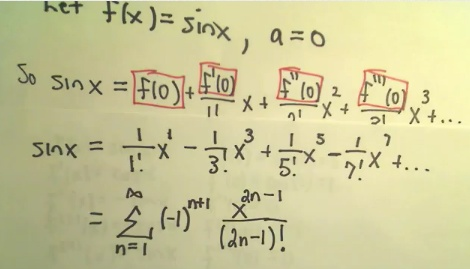 Let f(x) = sinx, a = 0
So sinx = f(0) + f'(0)/1! x + f''(0)/2! x² + f'''(0)/3! x³ + ...
sinx = 1/1! x¹ - 1/3! x³ + 1/5! x⁵ - 1/7! x⁷ + ...
= ∑_{n=1}^{∞} (-1)^{n+1} x^{2n-1}/(2n-1)!